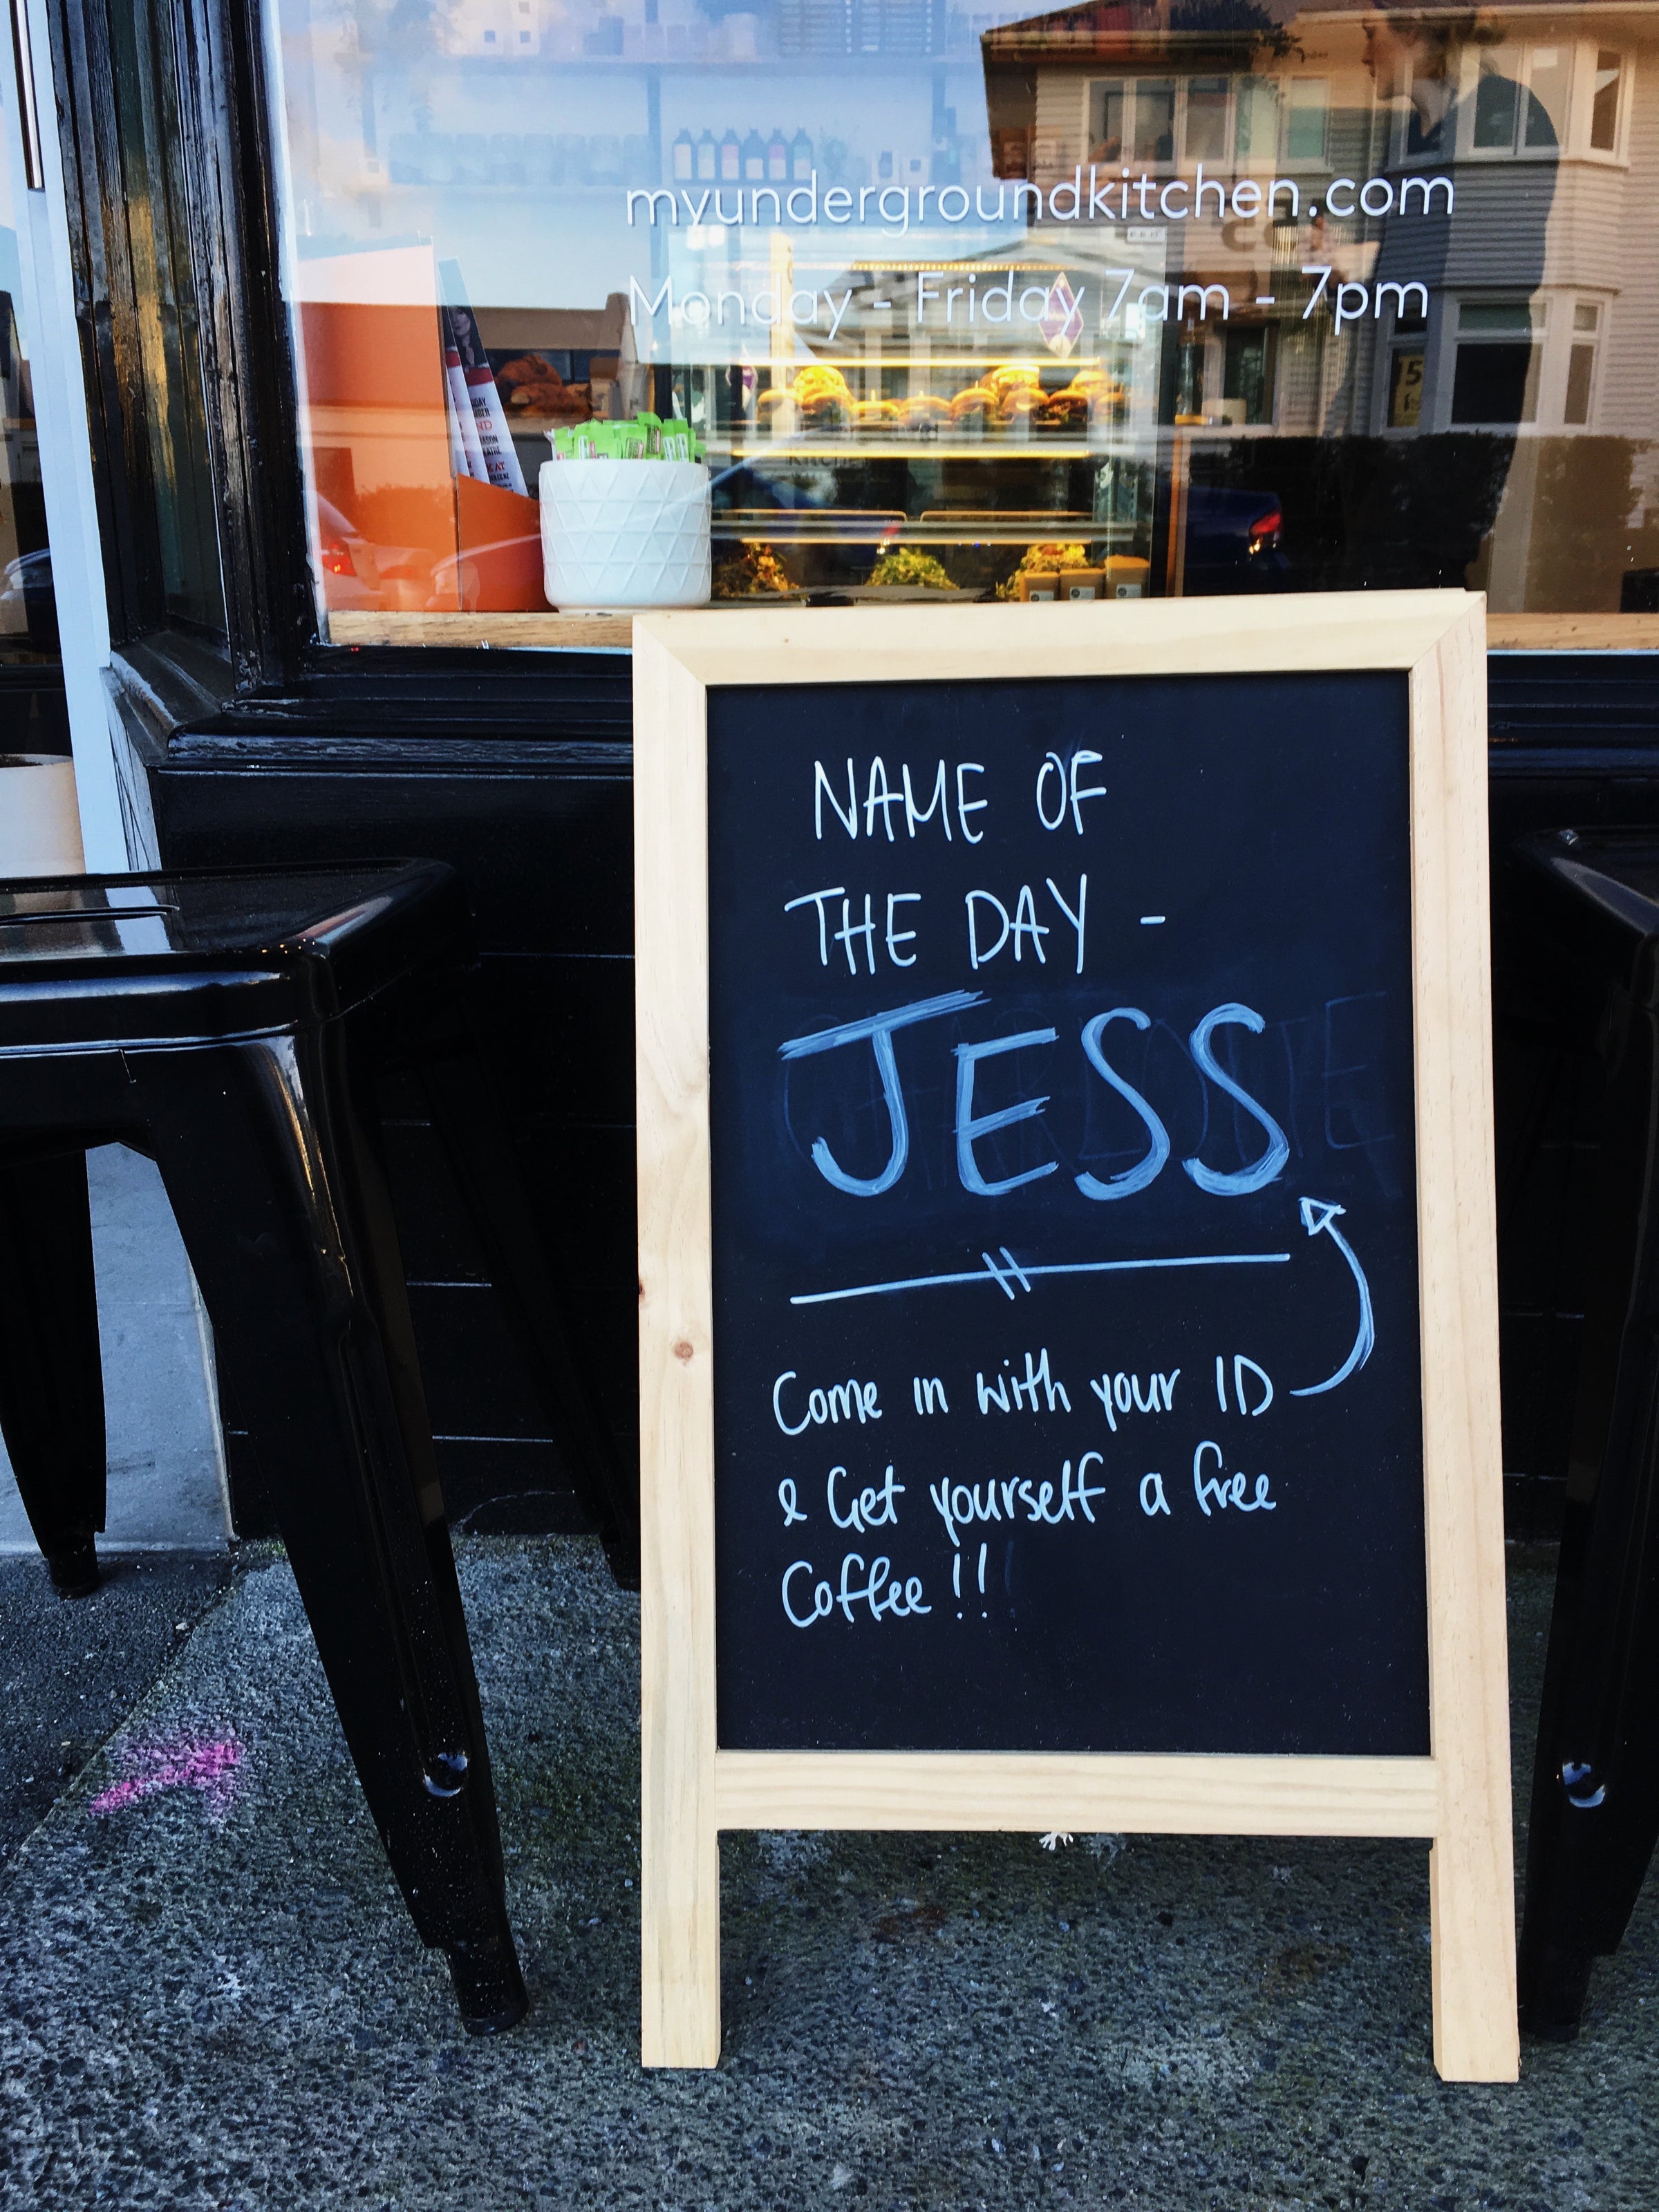 myundergroundkitchen.com
Monday - Friday 7am - 7pm
NAME OF
THE DAY -
JESS
Come in with your ID
& Get yourself a free
Coffee!!